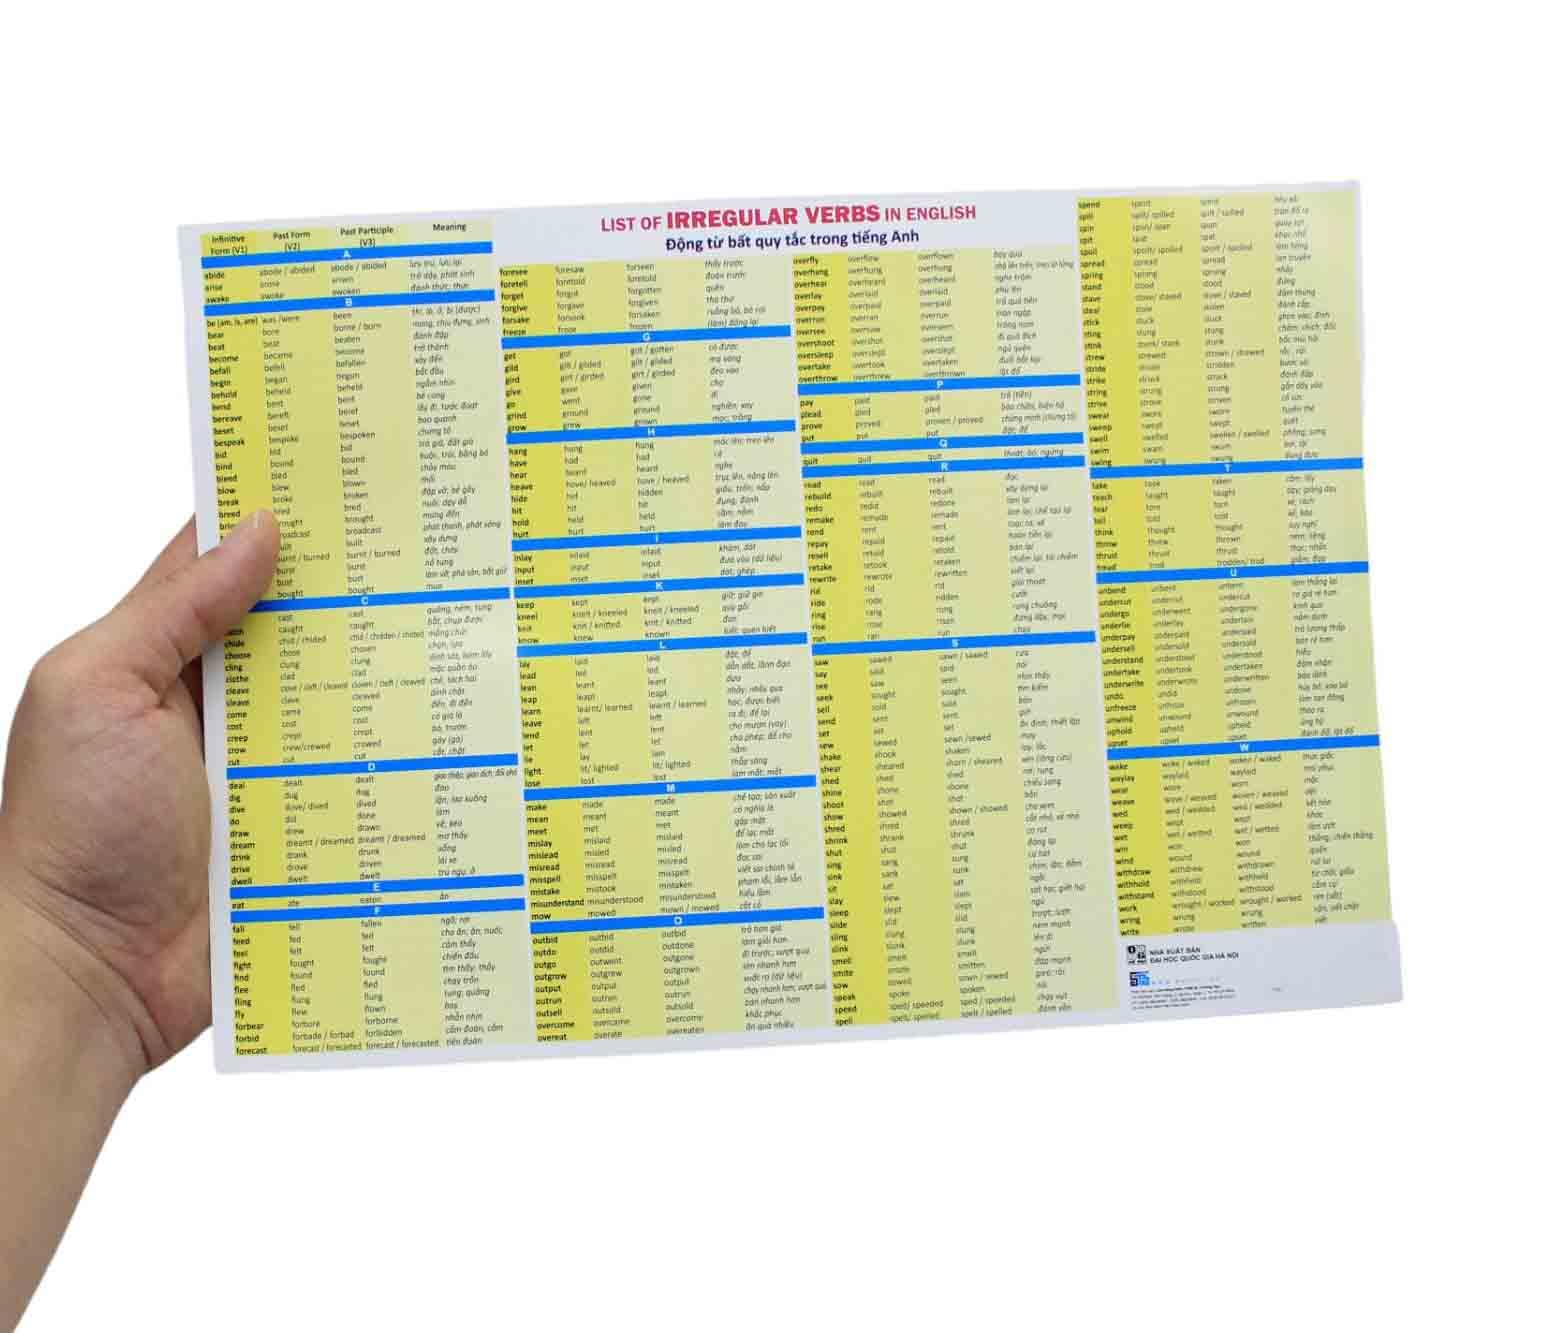 LIST OF IRREGULAR VERBS IN ENGLISH
Động từ bất quy tắc trong tiếng Anh
Infinitive Form (V1) Past Form (V2) Past Participle (V3) Meaning
A
abide abode / abided abode / abided lưu trú, lưu lại
arise arose arisen trỗi dậy, phát sinh
awake awoke awoken đánh thức; thức
B
be (am, is, are) was /were been thì, là, ở, bị (được)
bear bore borne / born mang, chịu đựng, sinh
beat beat beaten đánh đập
become became become trở thành
befall befell befallen xảy đến
begin began begun bắt đầu
behold beheld beheld ngắm nhìn
bend bent bent bẻ cong
bereave bereft bereft lấy đi, tước đoạt
beset beset beset bao quanh
bespeak bespoke bespoken chứng tỏ
bid bid bid trả giá, đặt giá
bind bound bound buộc, trói, băng bó
bleed bled bled chảy máu
blow blew blown thổi
break broke broken đập vỡ; bẻ gãy
breed bred bred nuôi; dạy dỗ
brought brought mang đến
broadcast phát thanh, phát sóng
built xây dựng
burnt / burned burnt / burned đốt, cháy
burst burst nổ tung
bust bust
bought bought mua
C
cast cast quăng, ném, tung
caught caught bắt, chụp được
chide chid / chided chid / chidden / chided mắng chửi
choose chose chosen chọn, lựa
cling clung clung dính sát, bám lấy
clothe clad clad mặc quần áo
cleave clove / cleft / cleaved cloven / cleft / cleaved chẻ, tách hai
cleave clave cleaved dính chặt
come came come đến, đi đến
cost cost cost có giá là
creep crept crept bò, trườn
crow crew/crewed crowed gáy (gà)
cut cut cut cắt, chặt
D
deal dealt dealt
dig dug dug đào
dive dove/ dived dived lặn, lao xuống
do did done làm
draw drew drawn vẽ; kéo
dream dreamt / dreamed dreamt / dreamed mơ thấy
drink drank drunk uống
drive drove driven lái xe
dwell dwelt dwelt trú ngụ, ở
E
eat ate eaten ăn
F
fall fell fallen ngã; rơi
feed fed fed cho ăn; ăn; nuôi;
feel felt felt cảm thấy
fight fought fought chiến đấu
find found found tìm thấy; thấy
flee fled fled chạy trốn
fling flung flung tung; quăng
fly flew flown bay
forbear forbore forborne nhẫn nhịn
forbid forbade / forbad forbidden cấm đoán, cấm
forecast forecast / forecasted forecast / forecasted tiên đoán
foresee foresaw forseen thấy trước
foretell foretold foretold đoán trước
forget forgot forgotten quên
forgive forgave forgiven tha thứ
forsake forsook forsaken ruồng bỏ, bỏ rơi
freeze froze frozen (làm) đông lại
G
get got got / gotten có được
gild gilt / gilded gilt / gilded mạ vàng
gird girt / girded girt / girded đeo vào
give gave given cho
go went gone đi
grind ground ground nghiền; xay
grow grew grown mọc; trồng
H
hang hung hung móc lên; treo lên
have had had có
hear heard heard nghe
heave hove/ heaved hove / heaved trục lên, nâng lên
hide hid hidden giấu, trốn; nấp
hit hit hit đụng, đánh
hold held held cầm; nắm
hurt hurt hurt làm đau
I
inlay inlaid inlaid khảm, dát
input input input đưa vào (dữ liệu)
inset inset inset dát; ghép
K
keep kept kept giữ; giữ gìn
kneel knelt / kneeled knelt / kneeled quỳ gối
knit knit / knitted knit / knitted đan
know knew known biết; quen biết
L
lay laid laid đặt; để
lead led led dẫn dắt, lãnh đạo
lean leant leant dựa
leap leapt leapt nhảy; nhảy qua
learn learnt/ learned learnt / learned học; được biết
leave left left ra đi; để lại
lend lent lent cho mượn (vay)
let let let cho phép; để cho
lie lay lain nằm
light lit/ lighted lit/ lighted thắp sáng
lose lost lost làm mất; mất
M
make made made chế tạo; sản xuất
mean meant meant có nghĩa là
meet met met gặp mặt
mislay mislaid mislaid để lạc mất
mislead misled misled làm cho lạc lối
misread misread misread đọc sai
misspell misspelt misspelt viết sai chính tả
mistake mistook mistaken phạm lỗi, lầm lẫn
misunderstand misunderstood misunderstood hiểu lầm
mow mowed mown / mowed cắt cỏ
O
outbid outbid outbid trả hơn giá
outdo outdid outdone làm giỏi hơn
outgo outwent outgone đi trước; vượt qua
outgrow outgrew outgrown lớn nhanh hơn
output output output xuất ra (dữ liệu)
outrun outran outrun chạy nhanh hơn; vượt quá
outsell outsold outsold bán nhanh hơn
overcome overcame overcome khắc phục
overeat overate overeaten ăn quá nhiều
overfly overflew overflown bay qua
overhang overhung overhung nhô lên trên, treo lơ lửng
overhear overheard overheard nghe trộm
overlay overlaid overlaid phủ lên
overpay overpaid overpaid trả quá tiền
overrun overran overrun tràn ngập
oversee oversaw overseen trông nom
overshoot overshot overshot đi quá đích
oversleep overslept overslept ngủ quên
overtake overtook overtaken đuổi bắt kịp
overthrow overthrew overthrown lật đổ
P
pay paid paid trả (tiền)
plead pled pled bào chữa, biện hộ
prove proved proven / proved chứng minh (chứng tỏ)
put put put đặt; để
Q
quit quit quit thoát; bỏ, ngừng
R
read read read đọc
rebuild rebuilt rebuilt xây dựng lại
redo redid redone làm lại
remake remade remade làm lại; chế tạo lại
rend rent rent toạc ra; xé
repay repaid repaid hoàn tiền lại
resell resold retold bán lại
retake retook retaken chiếm lại; tái chiếm
rewrite rewrote rewritten viết lại
rid rid rid giải thoát
ride rode ridden cưỡi
ring rang rung rung chuông
rise rose risen đứng dậy, mọc
run ran run chạy
S
saw sawed sawn / sawed cưa
say said said nói
see saw seen nhìn thấy
seek sought sought tìm kiếm
sell sold sold bán
send sent sent gửi
set set set ấn định; thiết lập
sew sewed sewn /sewed may
shake shook shaken lay; lắc
shear sheared shorn / sheared xén (lông cừu)
shed shed shed rơi; rụng
shine shone shone chiếu sáng
shoot shot shot bắn
show showed shown / showed cho xem
shred shred shred cắt nhỏ, xé nhỏ
shrink shrank shrunk co rút
shut shut shut đóng lại
sing sang sung ca hát
sink sank sunk chìm; lặn; đắm
sit sat sat ngồi
slay slew slain sát hại; giết hại
sleep slept slept ngủ
slide slid slid trượt; lướt
sling slung slung ném đi
slink slunk slunk lẻn đi
smell smelt smelt ngửi
smite smote smitten đập mạnh
sow sowed sown / sewed gieo; rải
speak spoke spoken nói
speed sped/ speeded sped / speeded chạy vụt
spell spelt/ spelled spelt / spelled đánh vần
spend spent spent tiêu xài
spill spilt/ spilled spilt / spilled tràn đổ ra
spin spun/ span spun quay sợi
spit spat spat khạc nhổ
spoil spoilt/ spoiled spoilt / spoiled làm hỏng
spread spread spread lan truyền
spring sprang sprung nhảy
stand stood stood đứng
stave stove/ staved stove / staved đâm thủng
steal stole stolen đánh cắp
stick stuck stuck ghim vào; đính
sting stung stung châm; chích; đốt
stink stunk/ stank stunk bốc mùi hôi
strew strewed strewn / strewed rắc, rải
stride strode stridden bước sải
strike struck struck đánh đập
string strung strung gắn dây vào
strive strove striven cố sức
swear swore sworn tuyên thệ
sweep swept swept quét
swell swelled swollen / swelled phồng; sưng
swim swam swum bơi; lội
swing swung swung đong đưa
T
take took taken cầm; lấy
teach taught taught dạy; giảng dạy
tear tore torn xé; rách
tell told told kể; bảo
think thought thought suy nghĩ
throw threw thrown ném; liệng
thrust thrust thrust thọc; nhấn
tread trod trodden/ trod giẫm; đạp
U
unbend unbent unbent làm thẳng lại
undercut undercut undercut ra giá rẻ hơn
undergo underwent undergone kinh qua
underlie underlay underlain nằm dưới
underpay underpaid underpaid trả lương thấp
undersell undersold undersold bán rẻ hơn
understand understood understood hiểu
undertake undertook undertaken đảm nhận
underwrite underwrote underwritten bảo hiểm
undo undid undone
unfreeze unfroze unfrozen làm tan đông
unwind unwound unwound tháo ra
uphold upheld upheld ủng hộ
upset upset upset đánh đổ; lật đổ
W
wake woke / waked woken / waked thức giấc
waylay waylaid waylaid mai phục
wear wore worn mặc
weave wove / weaved woven / weaved dệt
wed wed / wedded wed / wedded kết hôn
weep wept wept khóc
wet wet / wetted wet / wetted làm ướt
win won won thắng; chiến thắng
wind wound wound quấn
withdraw withdrew withdrawn rút lui
withhold withheld withheld từ chối; giấu
withstand withstood withstood cầm cự
work wrought / worked wrought / worked rèn (sắt)
wring wrung wrung vặn; siết chặt
write wrote written viết
NHÀ XUẤT BẢN
ĐẠI HỌC QUỐC GIA HÀ NỘI